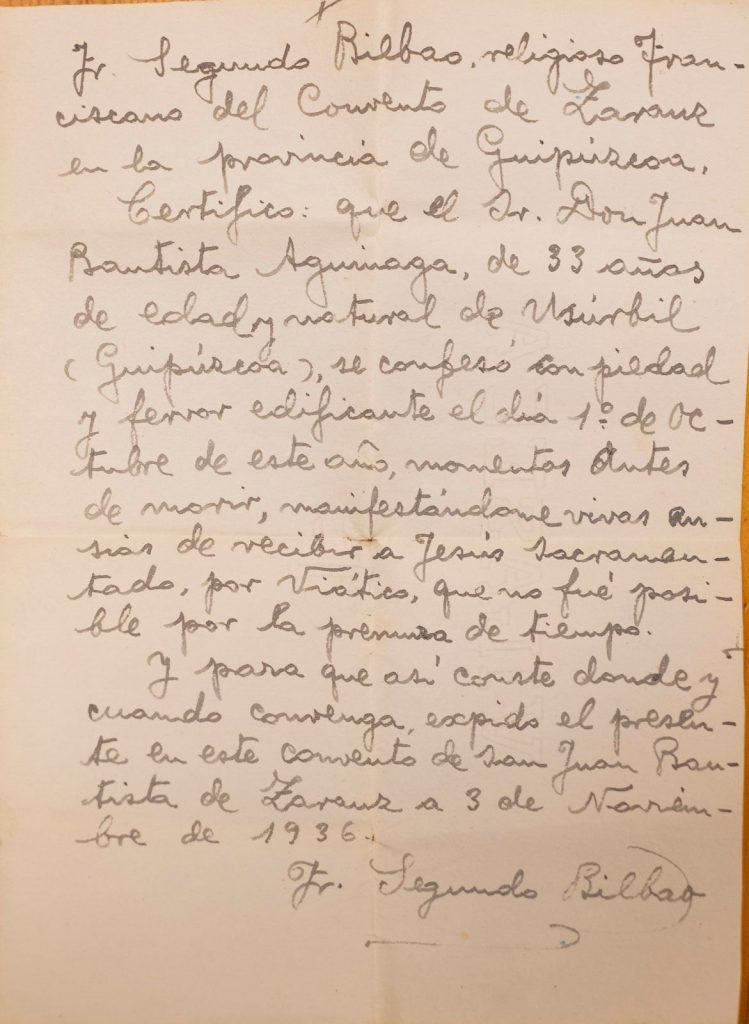 Fr. Segundo Bilbao, religioso Fran-
ciscano del Convento de Zarauz
en la provincia de Guipúzcoa,
Certifico: que el Sr. Don Juan
Bautista Aguinaga, de 33 años
de edad y natural de Usúrbil
(Guipúzcoa), se confesó con piedad
y fervor edificante el día 1º de Oc-
tubre de este año, momentos antes
de morir, manifestándome vivas an-
sias de recibir a Jesús Sacramen-
tado, por Viático, que no fué posi-
ble por la premura de tiempo.
Y para que así conste donde y
cuando convenga, expido el presen-
te en este convento de San Juan Bau-
tista de Zarauz a 3 de Noviem-
bre de 1936.
Fr. Segundo Bilbao